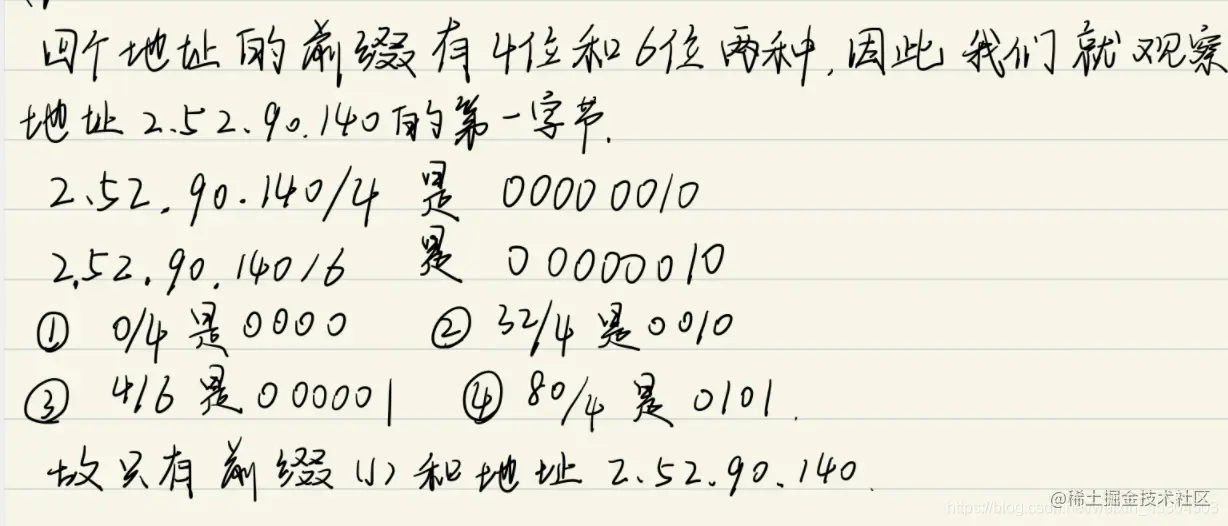 四个地址的前缀有4位和6位两种,因此我们就观察
地址2.52.90.140的第一字节.
2.52.90.140/4 是 00000010
2.52.90.140/6 是 00000010
① 0/4是0000 ② 32/4是0010
③ 4/6是000001 ④ 80/4是0101.
故只有前缀(1)和地址2.52.90.140.
@稀土掘金技术社区